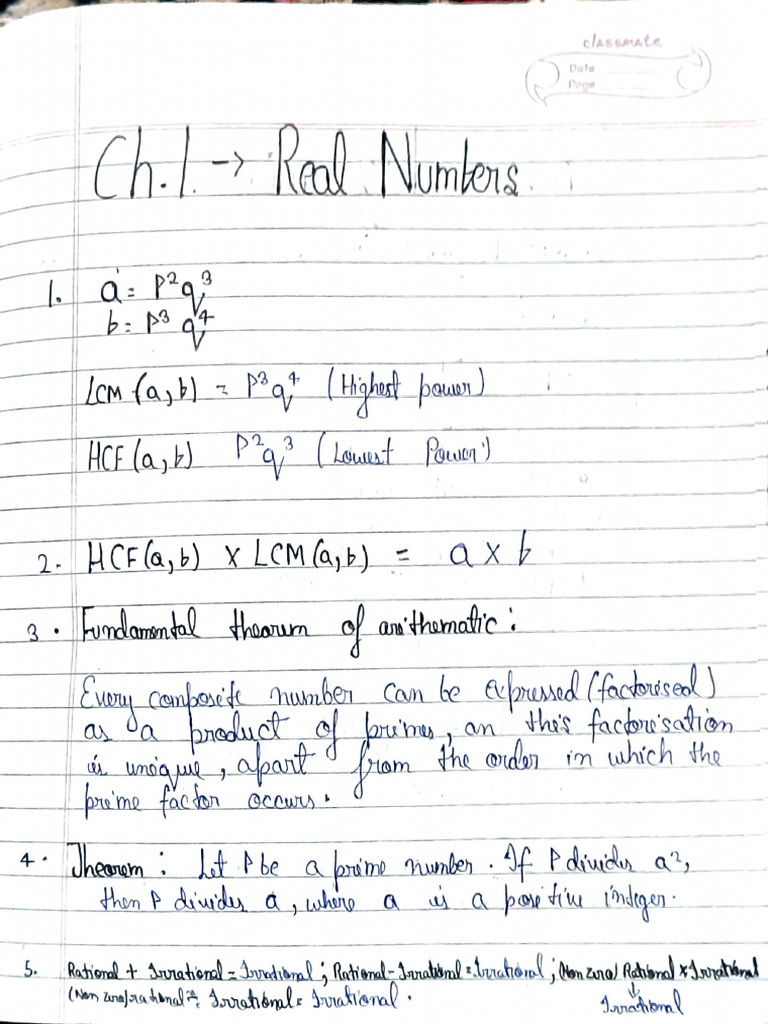 classmate
Date
Page
Ch.1. → Real Numbers.
1. a = P²q³
b = P³ q⁴
LCM (a,b) = P³q⁴ (Highest power)
HCF(a,b) P²q³ (Lowest Power)
2. HCF(a,b) X LCM(a,b) = a x b
3. Fundamental thearum of arithematic:
Every composite number can be expressed (factorised)
as a product of primes, an this factorisation
is unique, apart from the order in which the
prime factor occurs.
4. Theorem: Let P be a prime number. If P divides a²,
then P divides a, where a is a positive integer.
5. Rational + Irrational = Irrational; Rational - Irrational = Irrational; (Non zero) Rational x Irrational
(Non zero) rational ÷ Irrational = Irrational.
↓
Irrational